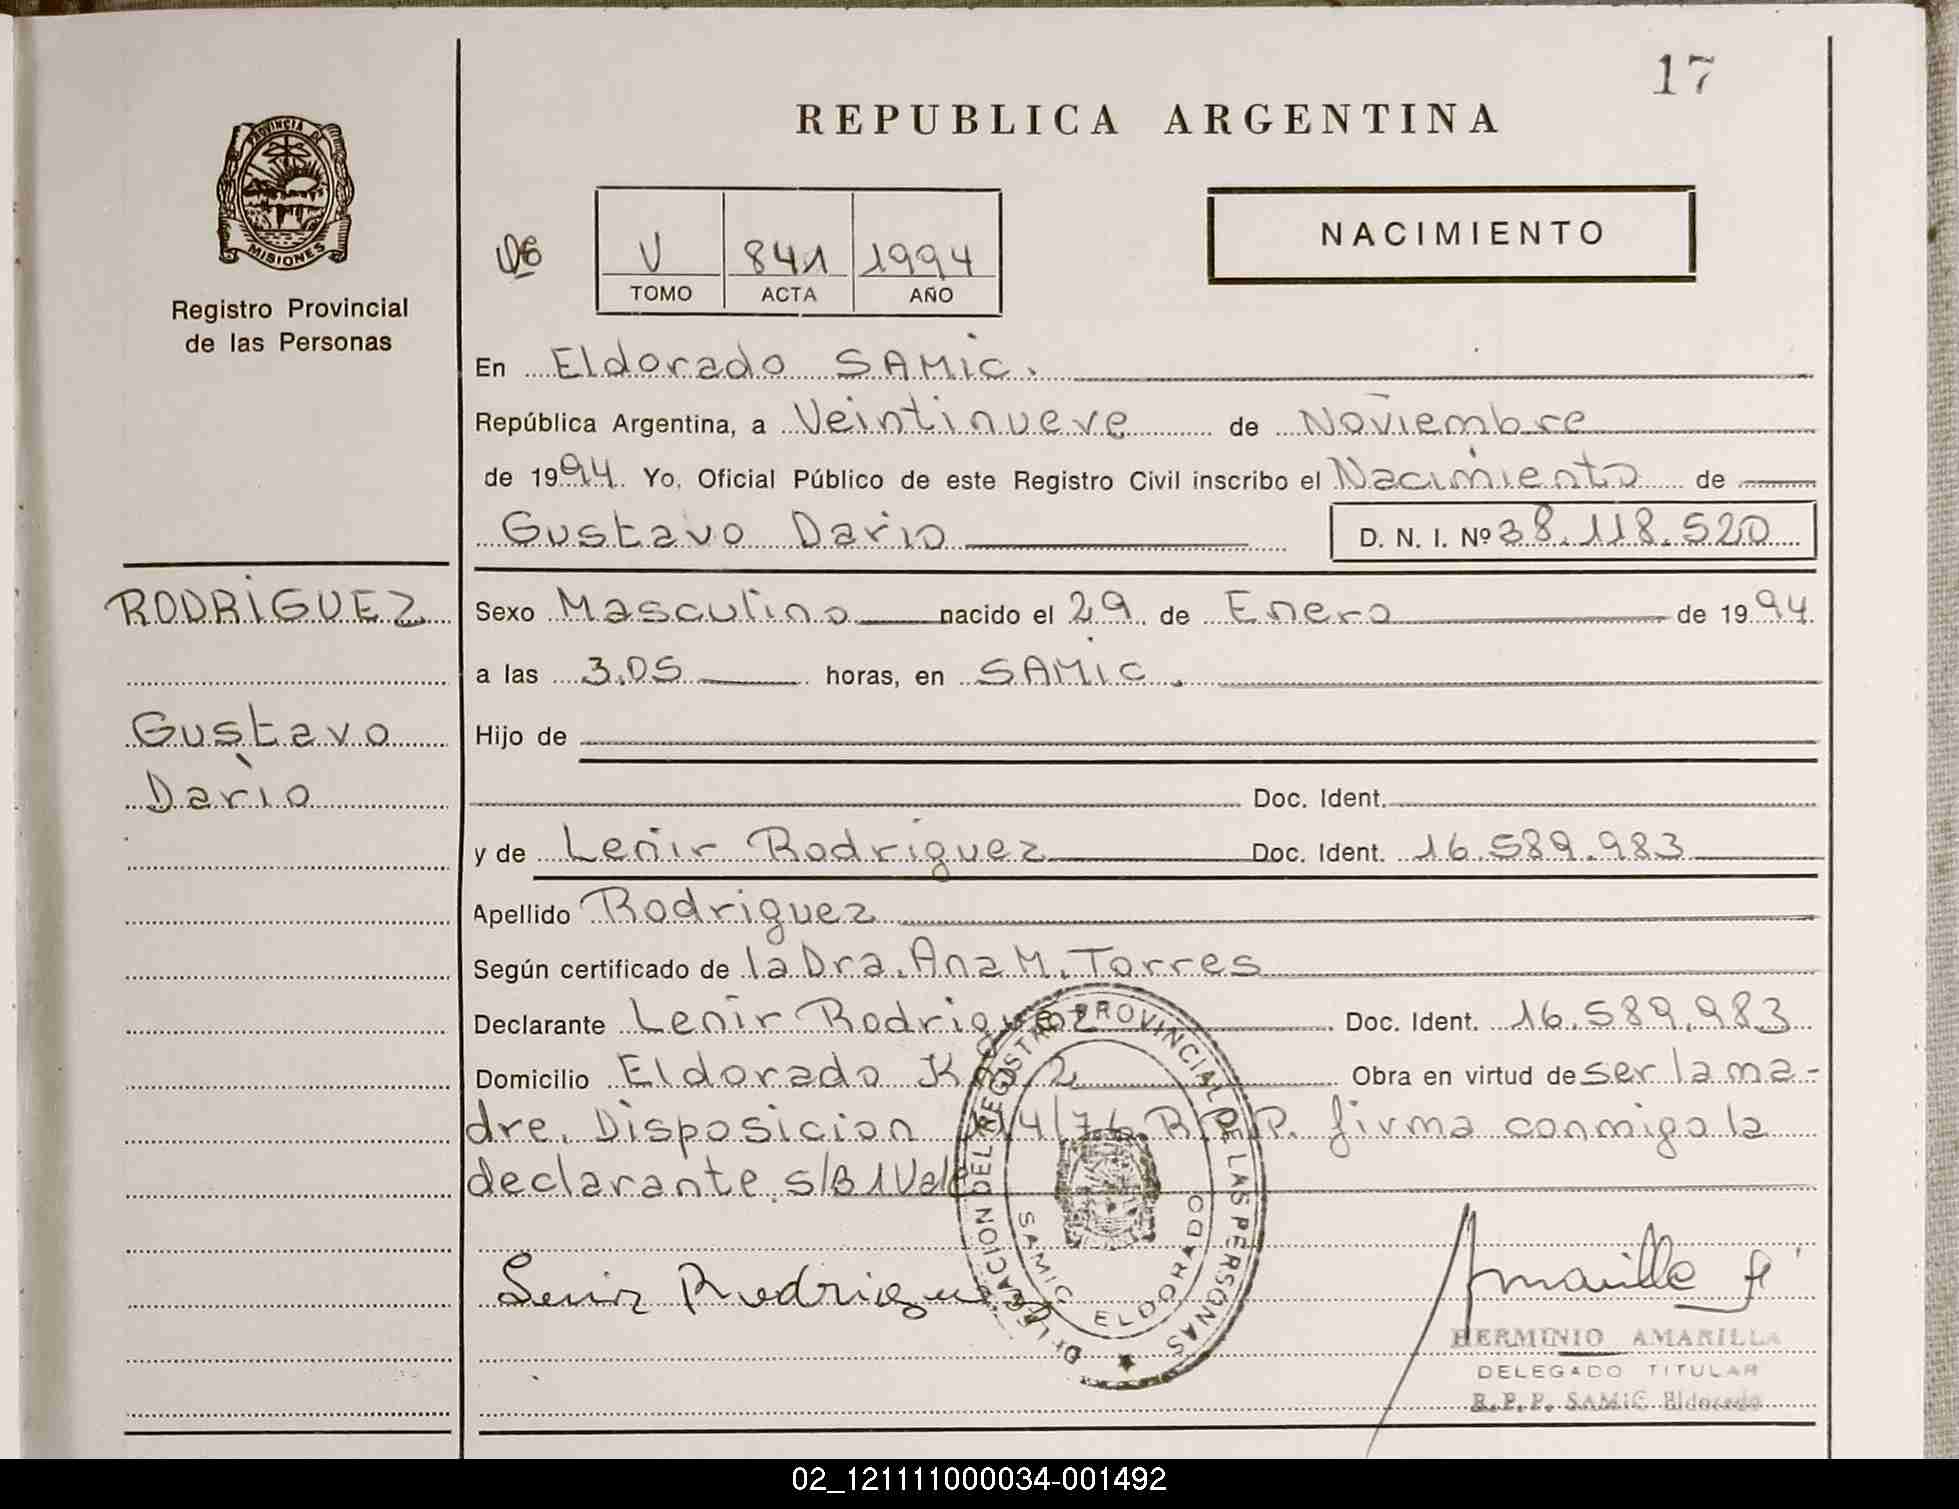 17
REPUBLICA ARGENTINA
PROVINCIA DE
MISIONES
Registro Provincial
de las Personas
V 841 1994
TOMO ACTA AÑO
NACIMIENTO
En Eldorado SAMIC.
República Argentina, a Veintinueve de Noviembre
de 1994. Yo, Oficial Público de este Registro Civil inscribo el Nacimiento de
Gustavo Dario D. N. I. Nº 38.118.520
RODRIGUEZ
Gustavo
Dario
Sexo Masculino nacido el 29 de Enero de 1994.
a las 3.05 horas, en SAMIC.
Hijo de
Doc. Ident.
y de Lenir Rodriguez Doc. Ident. 16.589.983
Apellido Rodriguez
Según certificado de la Dra. Ana M. Torres
Declarante Lenir Rodriguez Doc. Ident. 16.589.983
Domicilio Eldorado Obra en virtud de ser la ma-
dre. Disposicion R.P.P. firma conmigo la
declarante s/B 1 Vale
Lenir Rodriguez
DELEGACION DEL REGISTRO PROVINCIAL DE LAS PERSONAS
SAMIC ELDORADO
Amarilla H
HERMINIO AMARILLA
DELEGADO TITULAR
R.P.P. SAMIC Eldorado
02_121111000034-001492